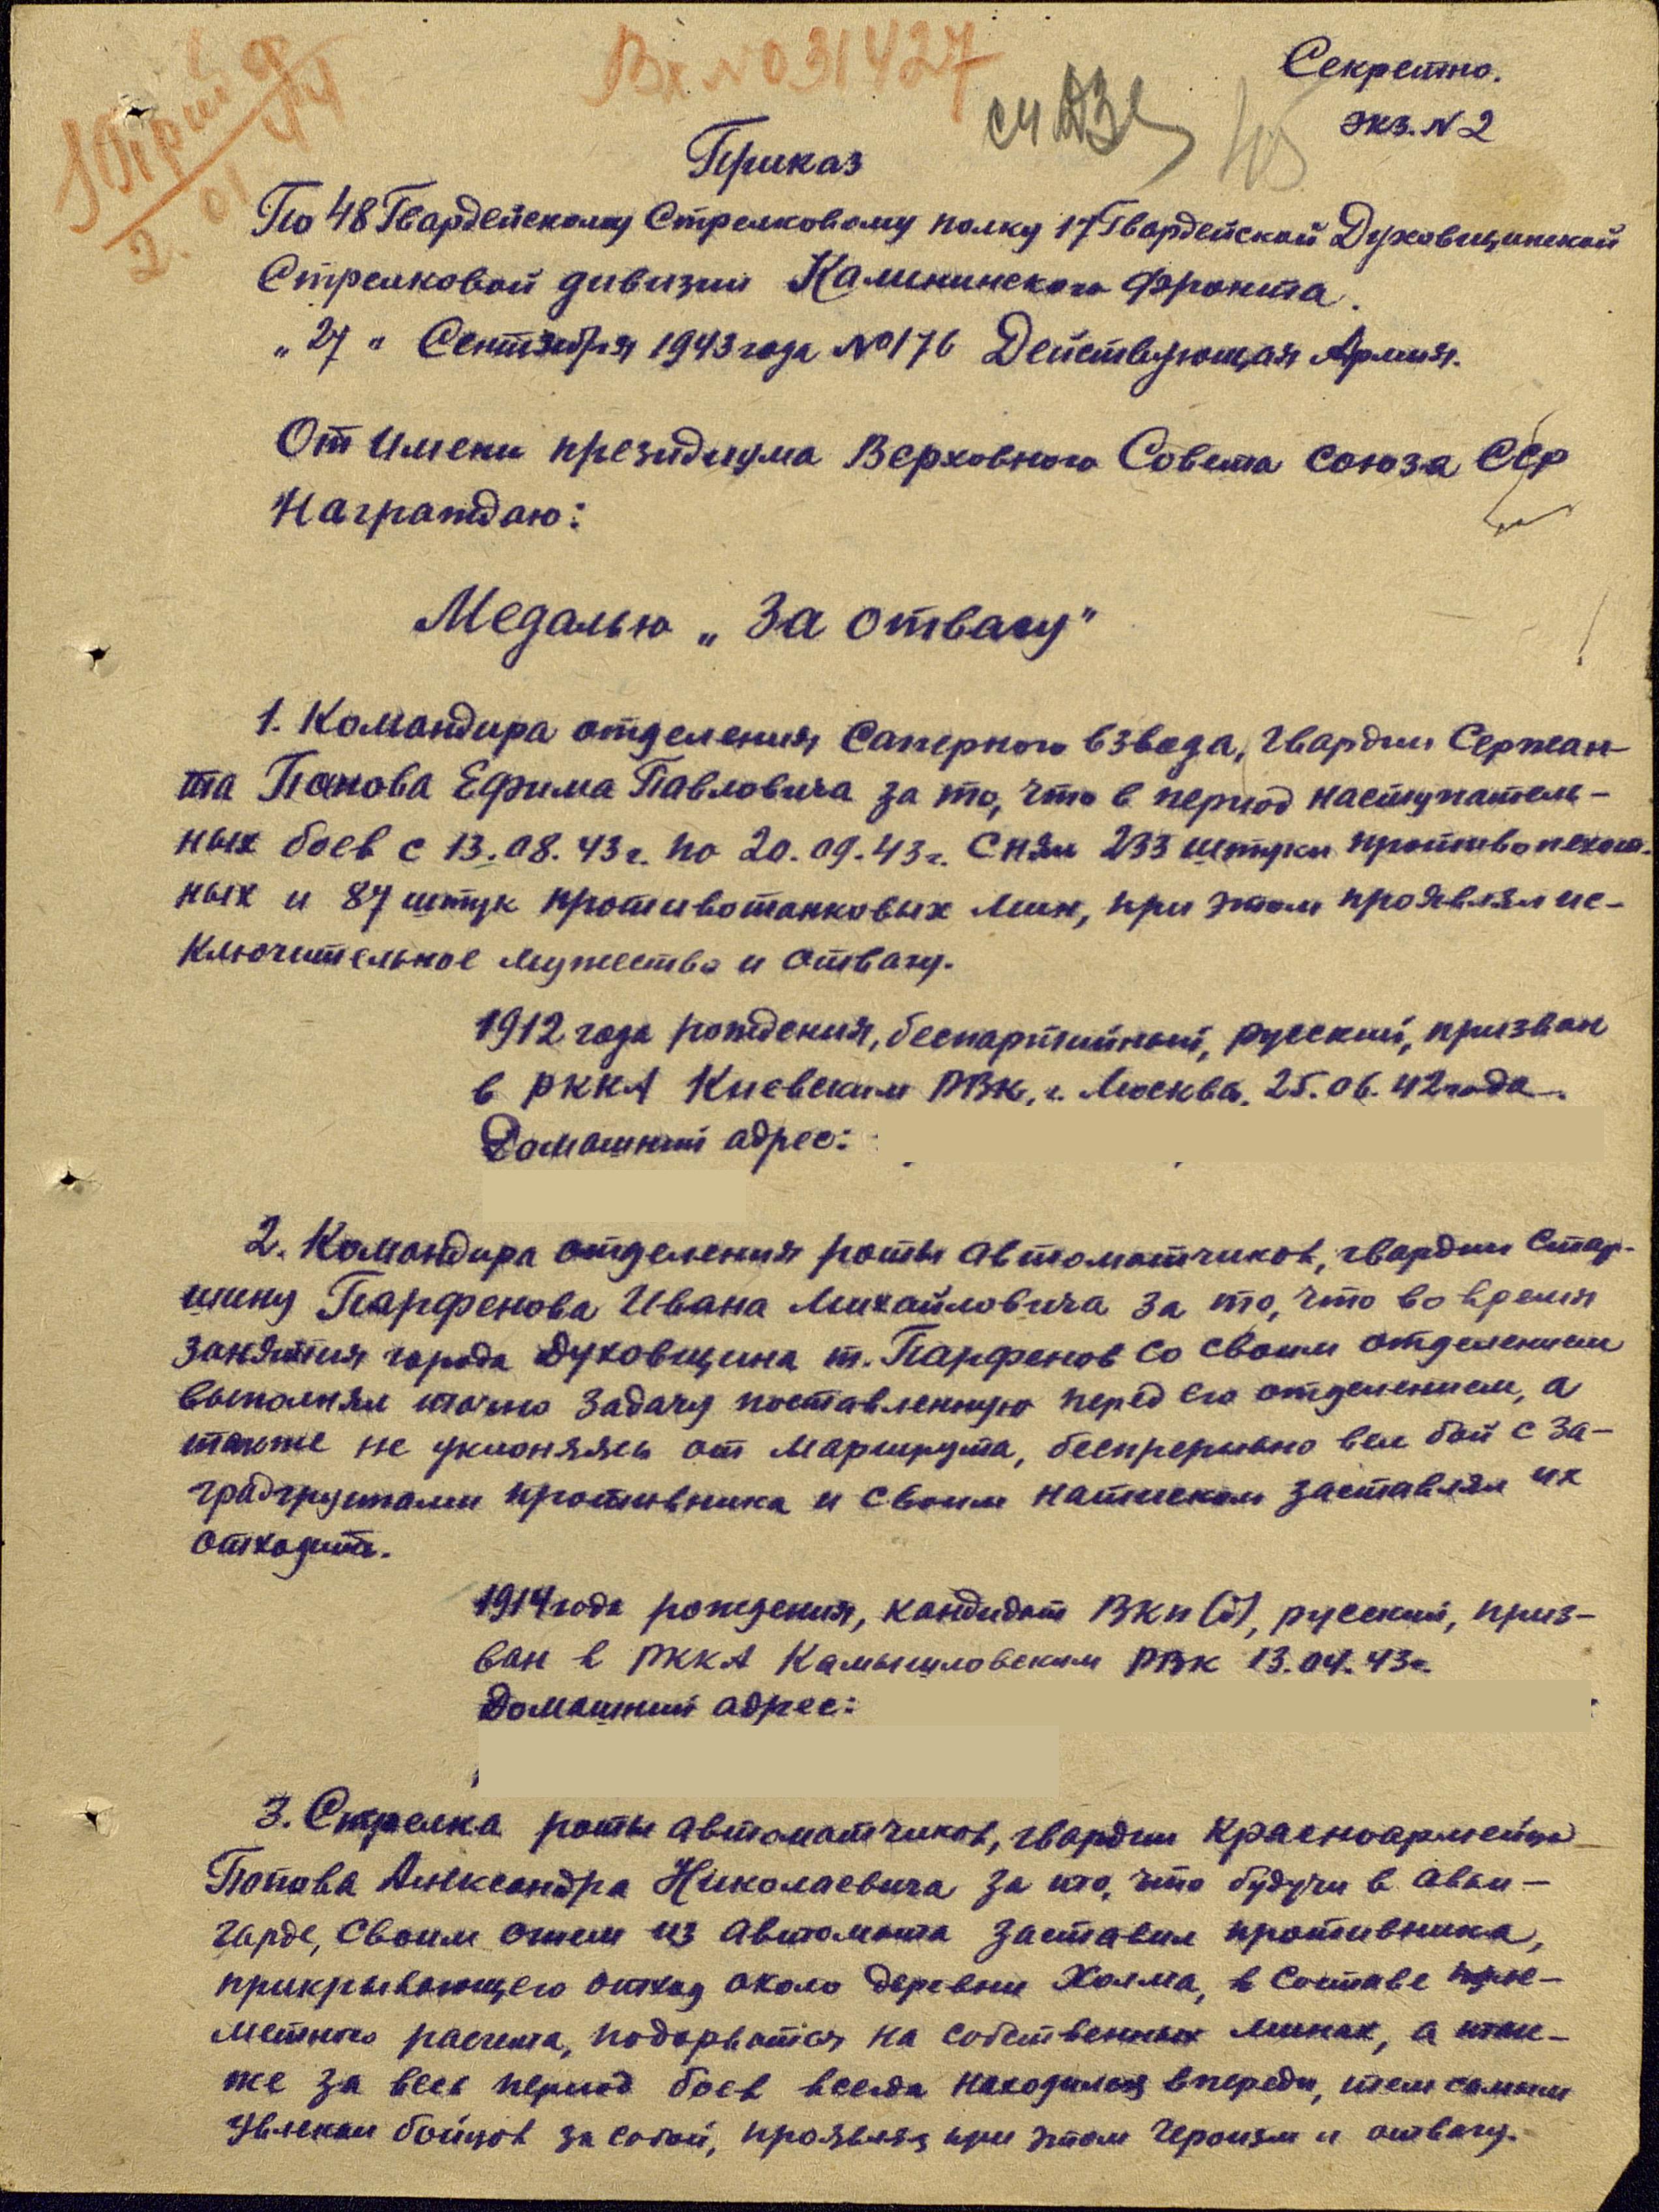 Вх №031427
Секретно.
экз. N 2
Приказ
По 48 Гвардейскому Стрелковому полку 17 Гвардейской Духовщинской
Стрелковой дивизии Калининского Фронта.
„27“ Сентября 1943 года №176 Действующая Армия.
От Имени президиума Верховного Совета союза ССР
Награждаю:
Медалью „За отвагу"
1. Командира отделения Саперного взвода, гвардии Сержан-
та Панова Ефима Павловича за то, что в период наступатель-
ных боев с 13.08.43г. по 20.09.43г. Снял 233 штуки противопехот-
ных и 87 штук противотанковых мин, при этом проявлял ис-
ключительное мужество и отвагу.
1912 года рождения, беспартийный, русский, призван
в РККА Киевским РВК, г. Москва, 25.06.42 года.
Домашний адрес:
2. Командира отделения роты автоматчиков, гвардии Стар-
шину Парфенова Ивана Михайловича за то, что во время
занятия города Духовщина т. Парфенов со своим отделением
выполнял точно задачу поставленную перед его отделением, а
также не уклоняясь от маршрута, беспрерывно вел бой с за-
градгруппами противника и своим натиском заставлял их
отходить.
1914 года рождения, кандидат ВКП(б), русский, приз-
ван в РККА Камышловским РВК 13.04.43г.
Домашний адрес:
3. Стрелка роты автоматчиков, гвардии Красноармейца
Попова Александра Николаевича за то, что будучи в аван-
гарде, своим огнем из автомата заставил противника,
прикрывающего отход около деревни Холма, в составе пуле-
метного расчета, подорваться на собственных минах, а так-
же за весь период боев всегда находился впереди, тем самым
увлекал бойцов за собой, проявляя при этом героизм и отвагу.